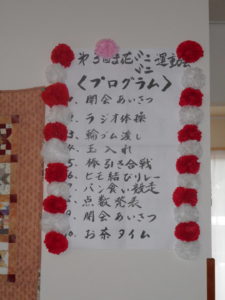 第3回花ミニミニ運動会
〈プログラム〉
1. 開会あいさつ
2. ラジオ体操
3. 輪ゴム渡し
4. 玉入れ
5. 棒引き合戦
6. ヒモ結びリレー
7. パン食い競走
8. 点数発表
9. 閉会あいさつ
10. お茶タイム